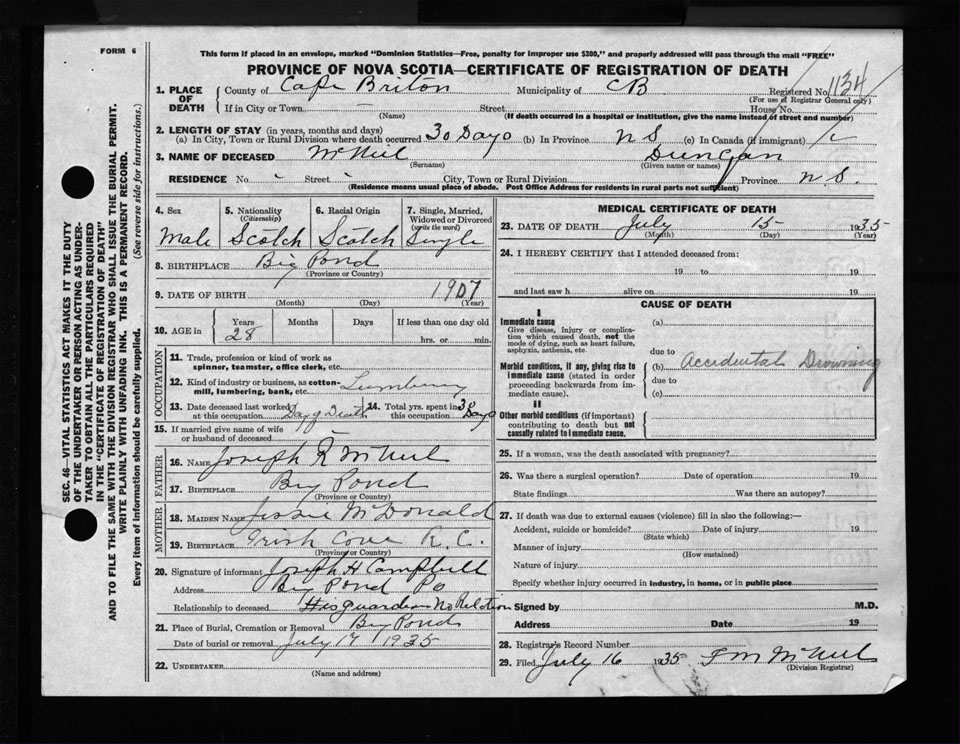 FORM 6
This form if placed in an envelope, marked "Dominion Statistics—Free, penalty for improper use $300," and properly addressed will pass through the mail "FREE"
PROVINCE OF NOVA SCOTIA—CERTIFICATE OF REGISTRATION OF DEATH
1. PLACE OF DEATH
County of Cape Briton Municipality of CB Registered No. 1134
(For use of Registrar General only)
If in City or Town — Street House No.
(Name) (If death occurred in a hospital or institution, give the name instead of street and number)
2. LENGTH OF STAY (in years, months and days)
(a) In City, Town or Rural Division where death occurred 30 Days (b) In Province N S (c) In Canada (if immigrant)
3. NAME OF DECEASED McNeil Duncan
(Surname) (Given name or names)
RESIDENCE No. - Street - City, Town or Rural Division Province N.S.
(Residence means usual place of abode. Post Office Address for residents in rural parts not sufficient)
4. Sex
Male
5. Nationality
(Citizenship)
Scotch
6. Racial Origin
Scotch
7. Single, Married, Widowed or Divorced
(write the word)
Single
8. BIRTHPLACE Big Pond
(Province or Country)
9. DATE OF BIRTH 1907
(Month) (Day) (Year)
10. AGE in Years Months Days If less than one day old
28 hrs. or min.
OCCUPATION
11. Trade, profession or kind of work as
spinner, teamster, office clerk, etc.
12. Kind of industry or business, as cotton-
mill, lumbering, bank, etc. Lumbering
13. Date deceased last worked at this occupation Day of Death
14. Total yrs. spent in this occupation 30 Days
15. If married give name of wife
or husband of deceased
FATHER
16. NAME Joseph R McNeil
17. BIRTHPLACE Big Pond
(Province or Country)
MOTHER
18. MAIDEN NAME Jessie McDonald
19. BIRTHPLACE Irish Cove R.C.
(Province or Country)
20. Signature of informant Joseph H Campbell
Address Big Pond Po
Relationship to deceased His guardian No Relation
21. Place of Burial, Cremation or Removal Big Pond
Date of burial or removal July 17 1935
22. UNDERTAKER
(Name and address)
MEDICAL CERTIFICATE OF DEATH
23. DATE OF DEATH July 15 1935
(Month) (Day) (Year)
24. I HEREBY CERTIFY that I attended deceased from:
19 to 19
and last saw h alive on 19
CAUSE OF DEATH
I
Immediate cause
Give disease, injury or complica-
tion which caused death, not the
mode of dying, such as heart failure,
asphyxia, asthenia, etc.
(a)
due to
Morbid conditions, if any, giving rise to
immediate cause (stated in order
proceeding backwards from im-
mediate cause).
(b) Accidental Drowning
due to
(c)
II
Other morbid conditions (if important)
contributing to death but not
causally related to immediate cause.
25. If a woman, was the death associated with pregnancy?
26. Was there a surgical operation? Date of operation 19
State findings Was there an autopsy?
27. If death was due to external causes (violence) fill in also the following:—
Accident, suicide or homicide? Date of injury 19
(State which)
Manner of injury
(How sustained)
Nature of injury
Specify whether injury occurred in industry, in home, or in public place
Signed by M.D.
Address Date 19
28. Registrar's Record Number
29. Filed July 16 1935 McNeil
(Division Registrar)
SEC. 46—VITAL STATISTICS ACT MAKES IT THE DUTY
OF THE UNDERTAKER OR PERSON ACTING AS UNDER-
TAKER TO OBTAIN ALL THE PARTICULARS REQUIRED
IN THE "CERTIFICATE OF REGISTRATION OF DEATH"
AND TO FILE THE SAME WITH THE DIVISION REGISTRAR WHO SHALL ISSUE THE BURIAL PERMIT.
WRITE PLAINLY WITH UNFADING INK. THIS IS A PERMANENT RECORD.
Every item of information should be carefully supplied. (See reverse side for instructions.)